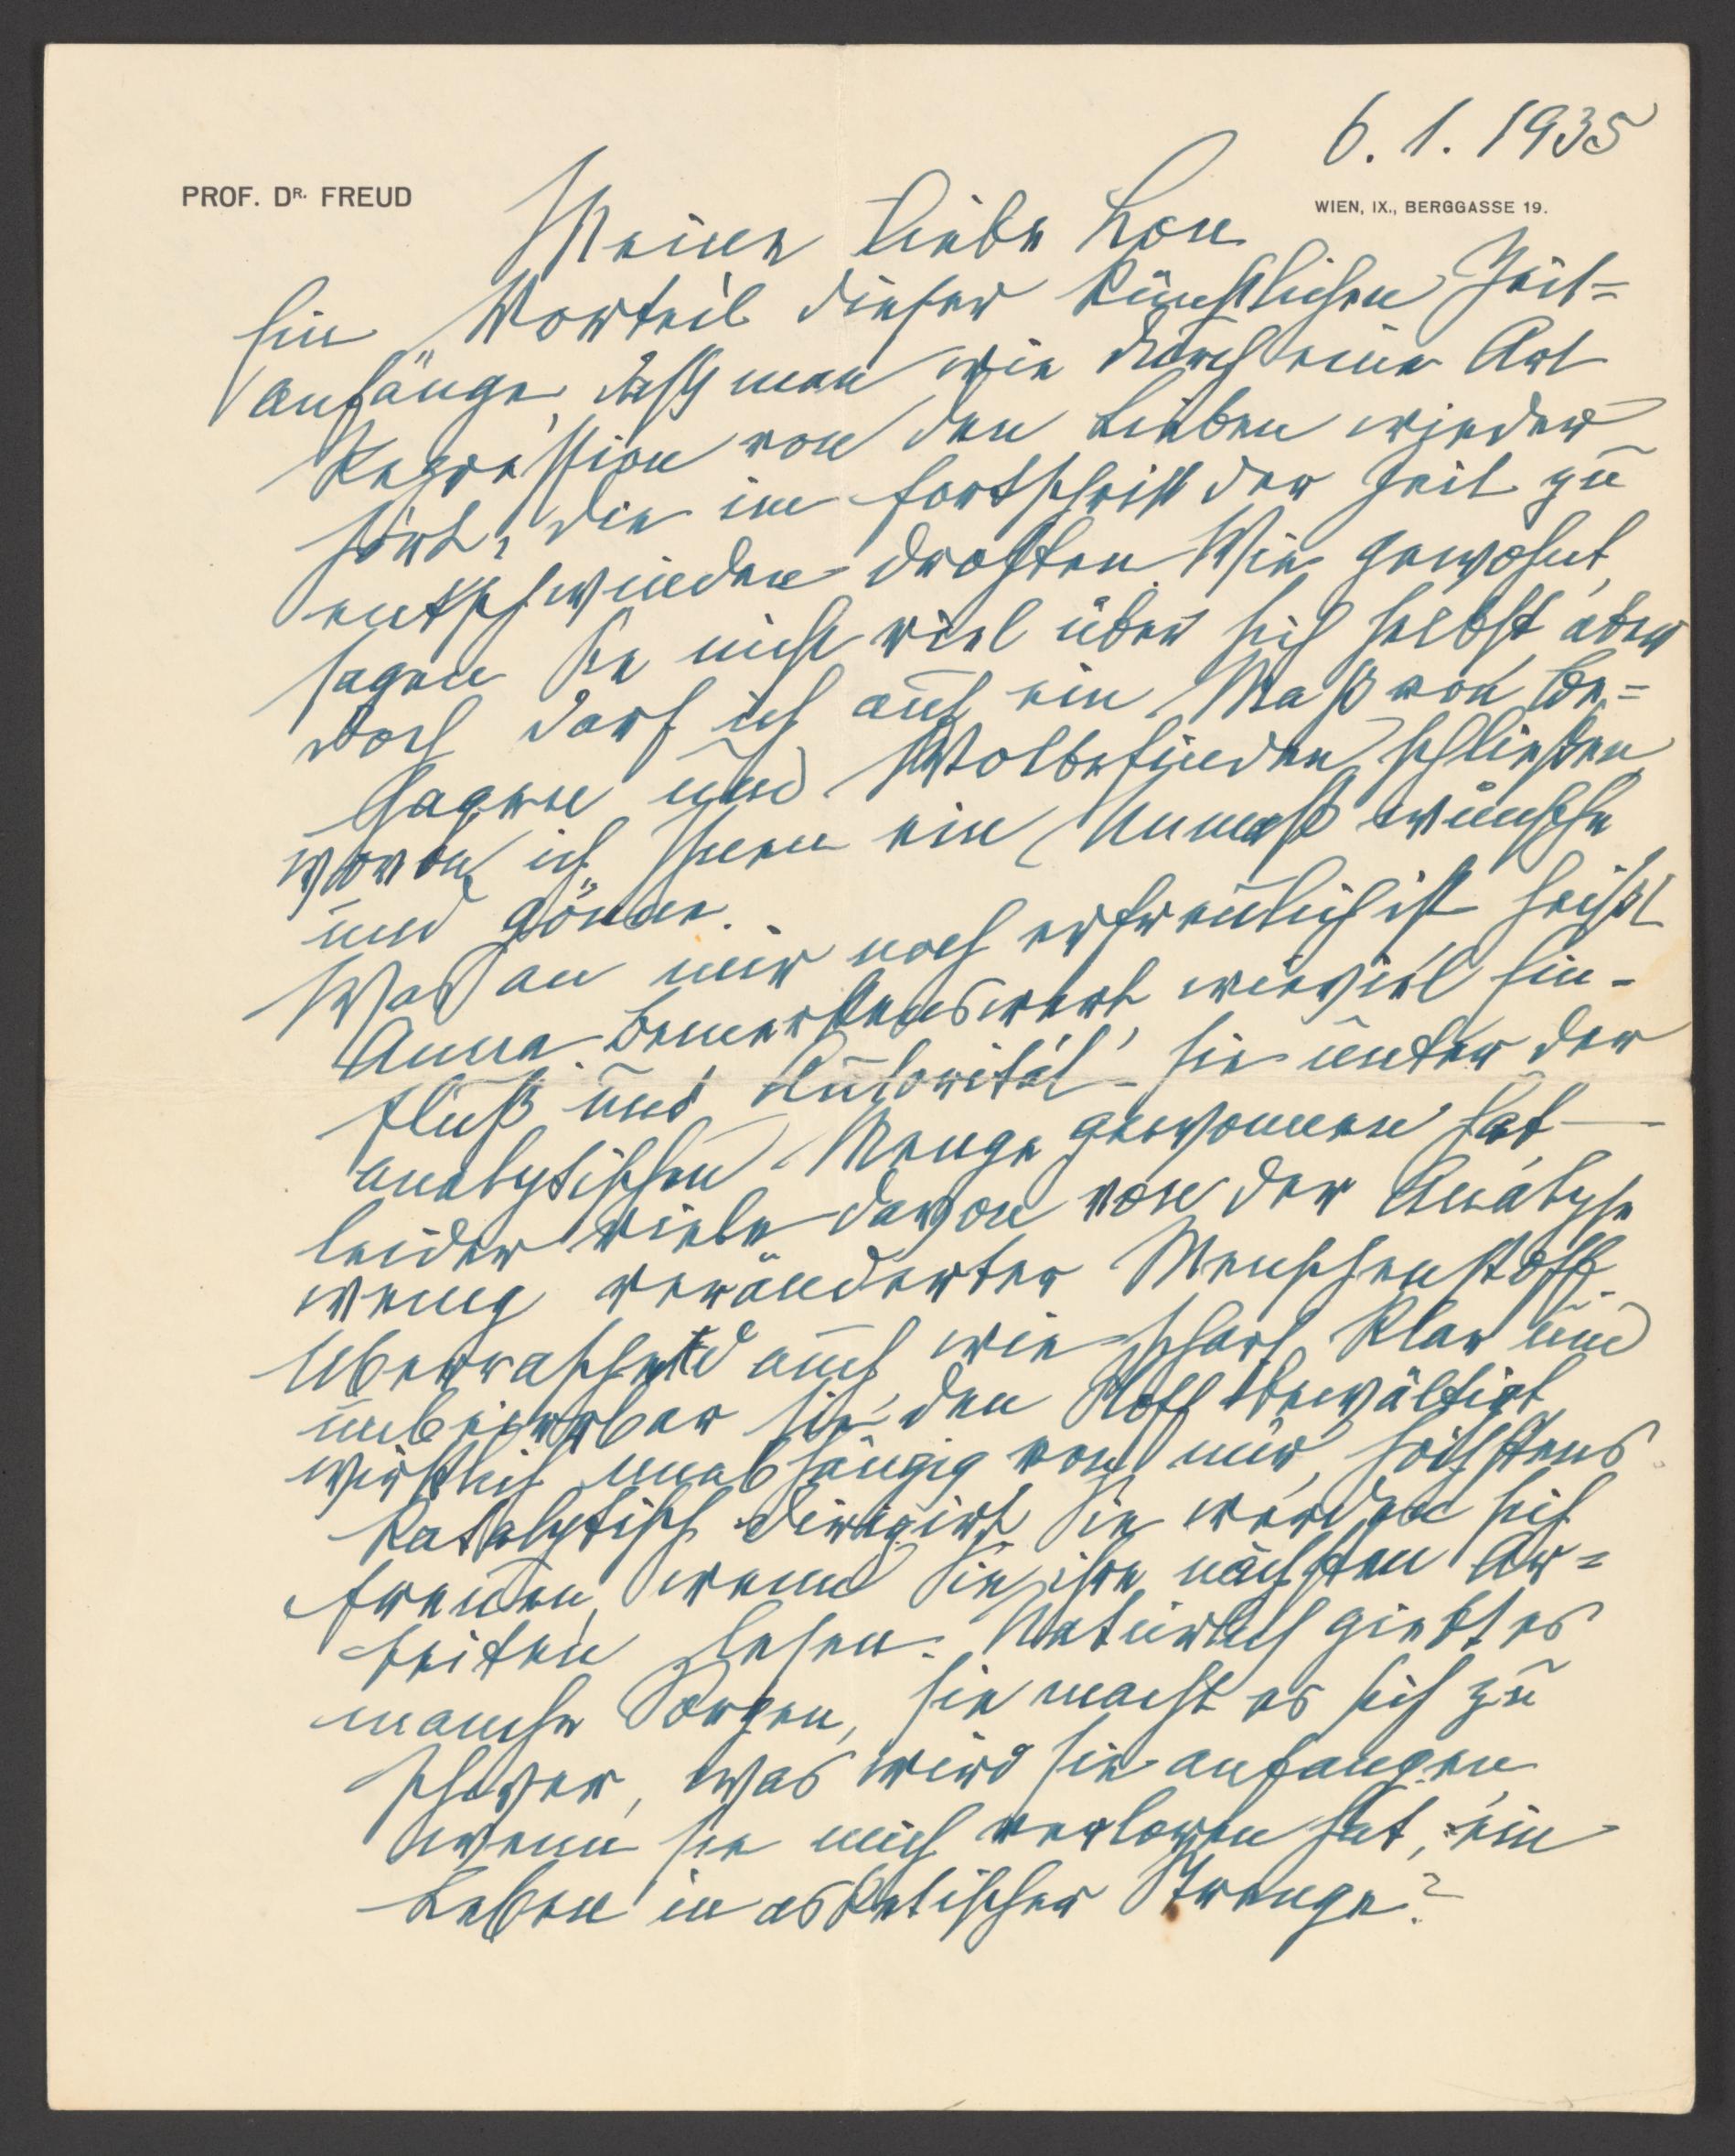 6. 1. 1935
PROF. DR. FREUD
WIEN, IX., BERGGASSE 19.
Meine liebe Lou
Ein Vorteil dieser künstlichen Zeit=
anfänge, daß man wie durch eine Art
Regression von den Lieben wieder
hört, die im Fortschritt der Zeit zu
entschwinden drohten. Wie gewohnt,
sagen Sie nicht viel über sich selbst aber
doch darf ich auf ein Maß von Be=
hagen und Wolbefinden schließen,
wovon ich Ihnen ein Unmaß wünsche
und gönne.
Was an mir noch erfreulich ist heißt
Anna. Bemerkenswert, wieviel Ein-
fluß und Autorität sie unter der
analytischen Menge gewonnen hat —
leider viele davon von der Analyse
wenig veränderter Menschenstoff.
Überraschend auch wie scharf, klar und
unbeirrbar sie den Stoff bewältigt,
wirklich unabhängig von mir, höchstens
katalytisch dirigirt. Sie werden sich
freuen, wenn Sie ihre nächsten Ar=
beiten lesen. Natürlich giebt es
manche Sorgen, sie macht es sich zu
schwer, was wird sie anfangen
wenn sie mich verloren hat, ein
Leben in asketischer Strenge?